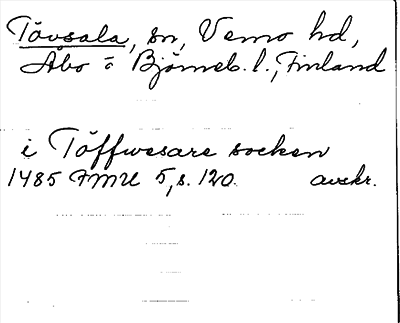 Tövsala, sn, Vemo hd,
Åbo o Björneb. l., Finland
i Töffwesare socken
1485 FMU 5, s. 120. avskr.